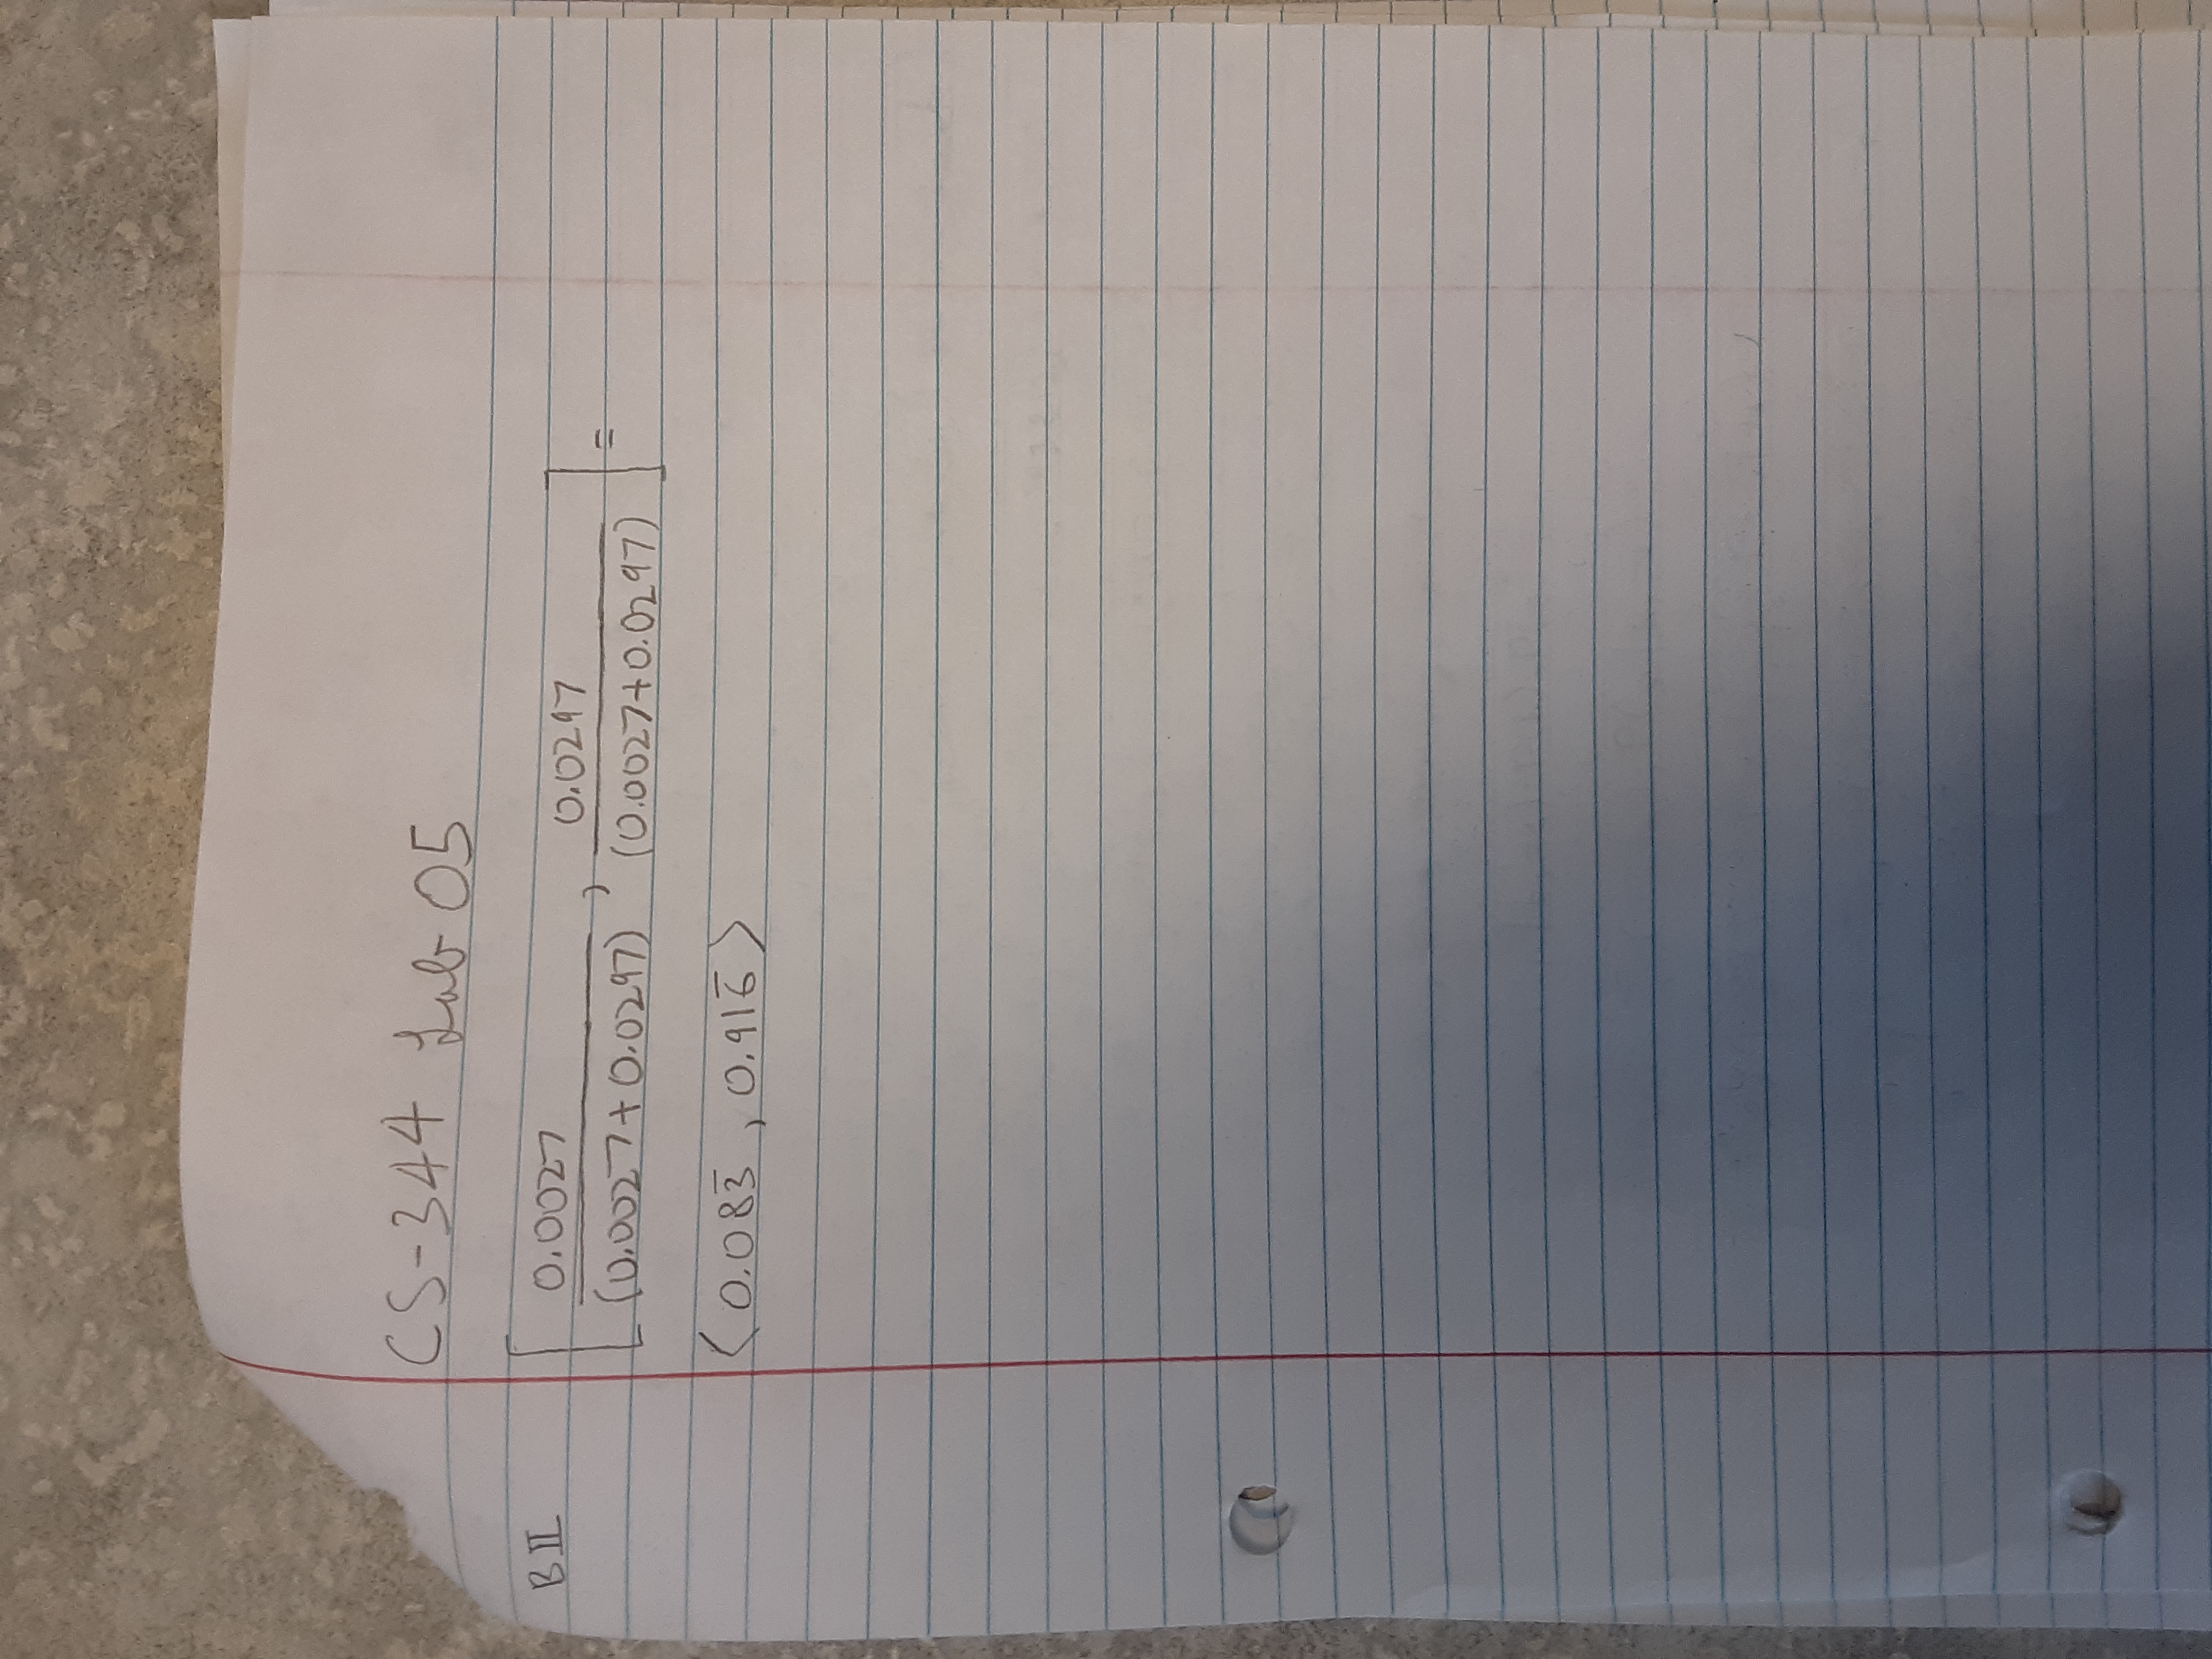 CS-344 Lab 05
B II [ 0.0027 / (0.0027+0.0297) , 0.0297 / (0.0027+0.0297) ] =
⟨ 0.083̅ , 0.916̅ ⟩